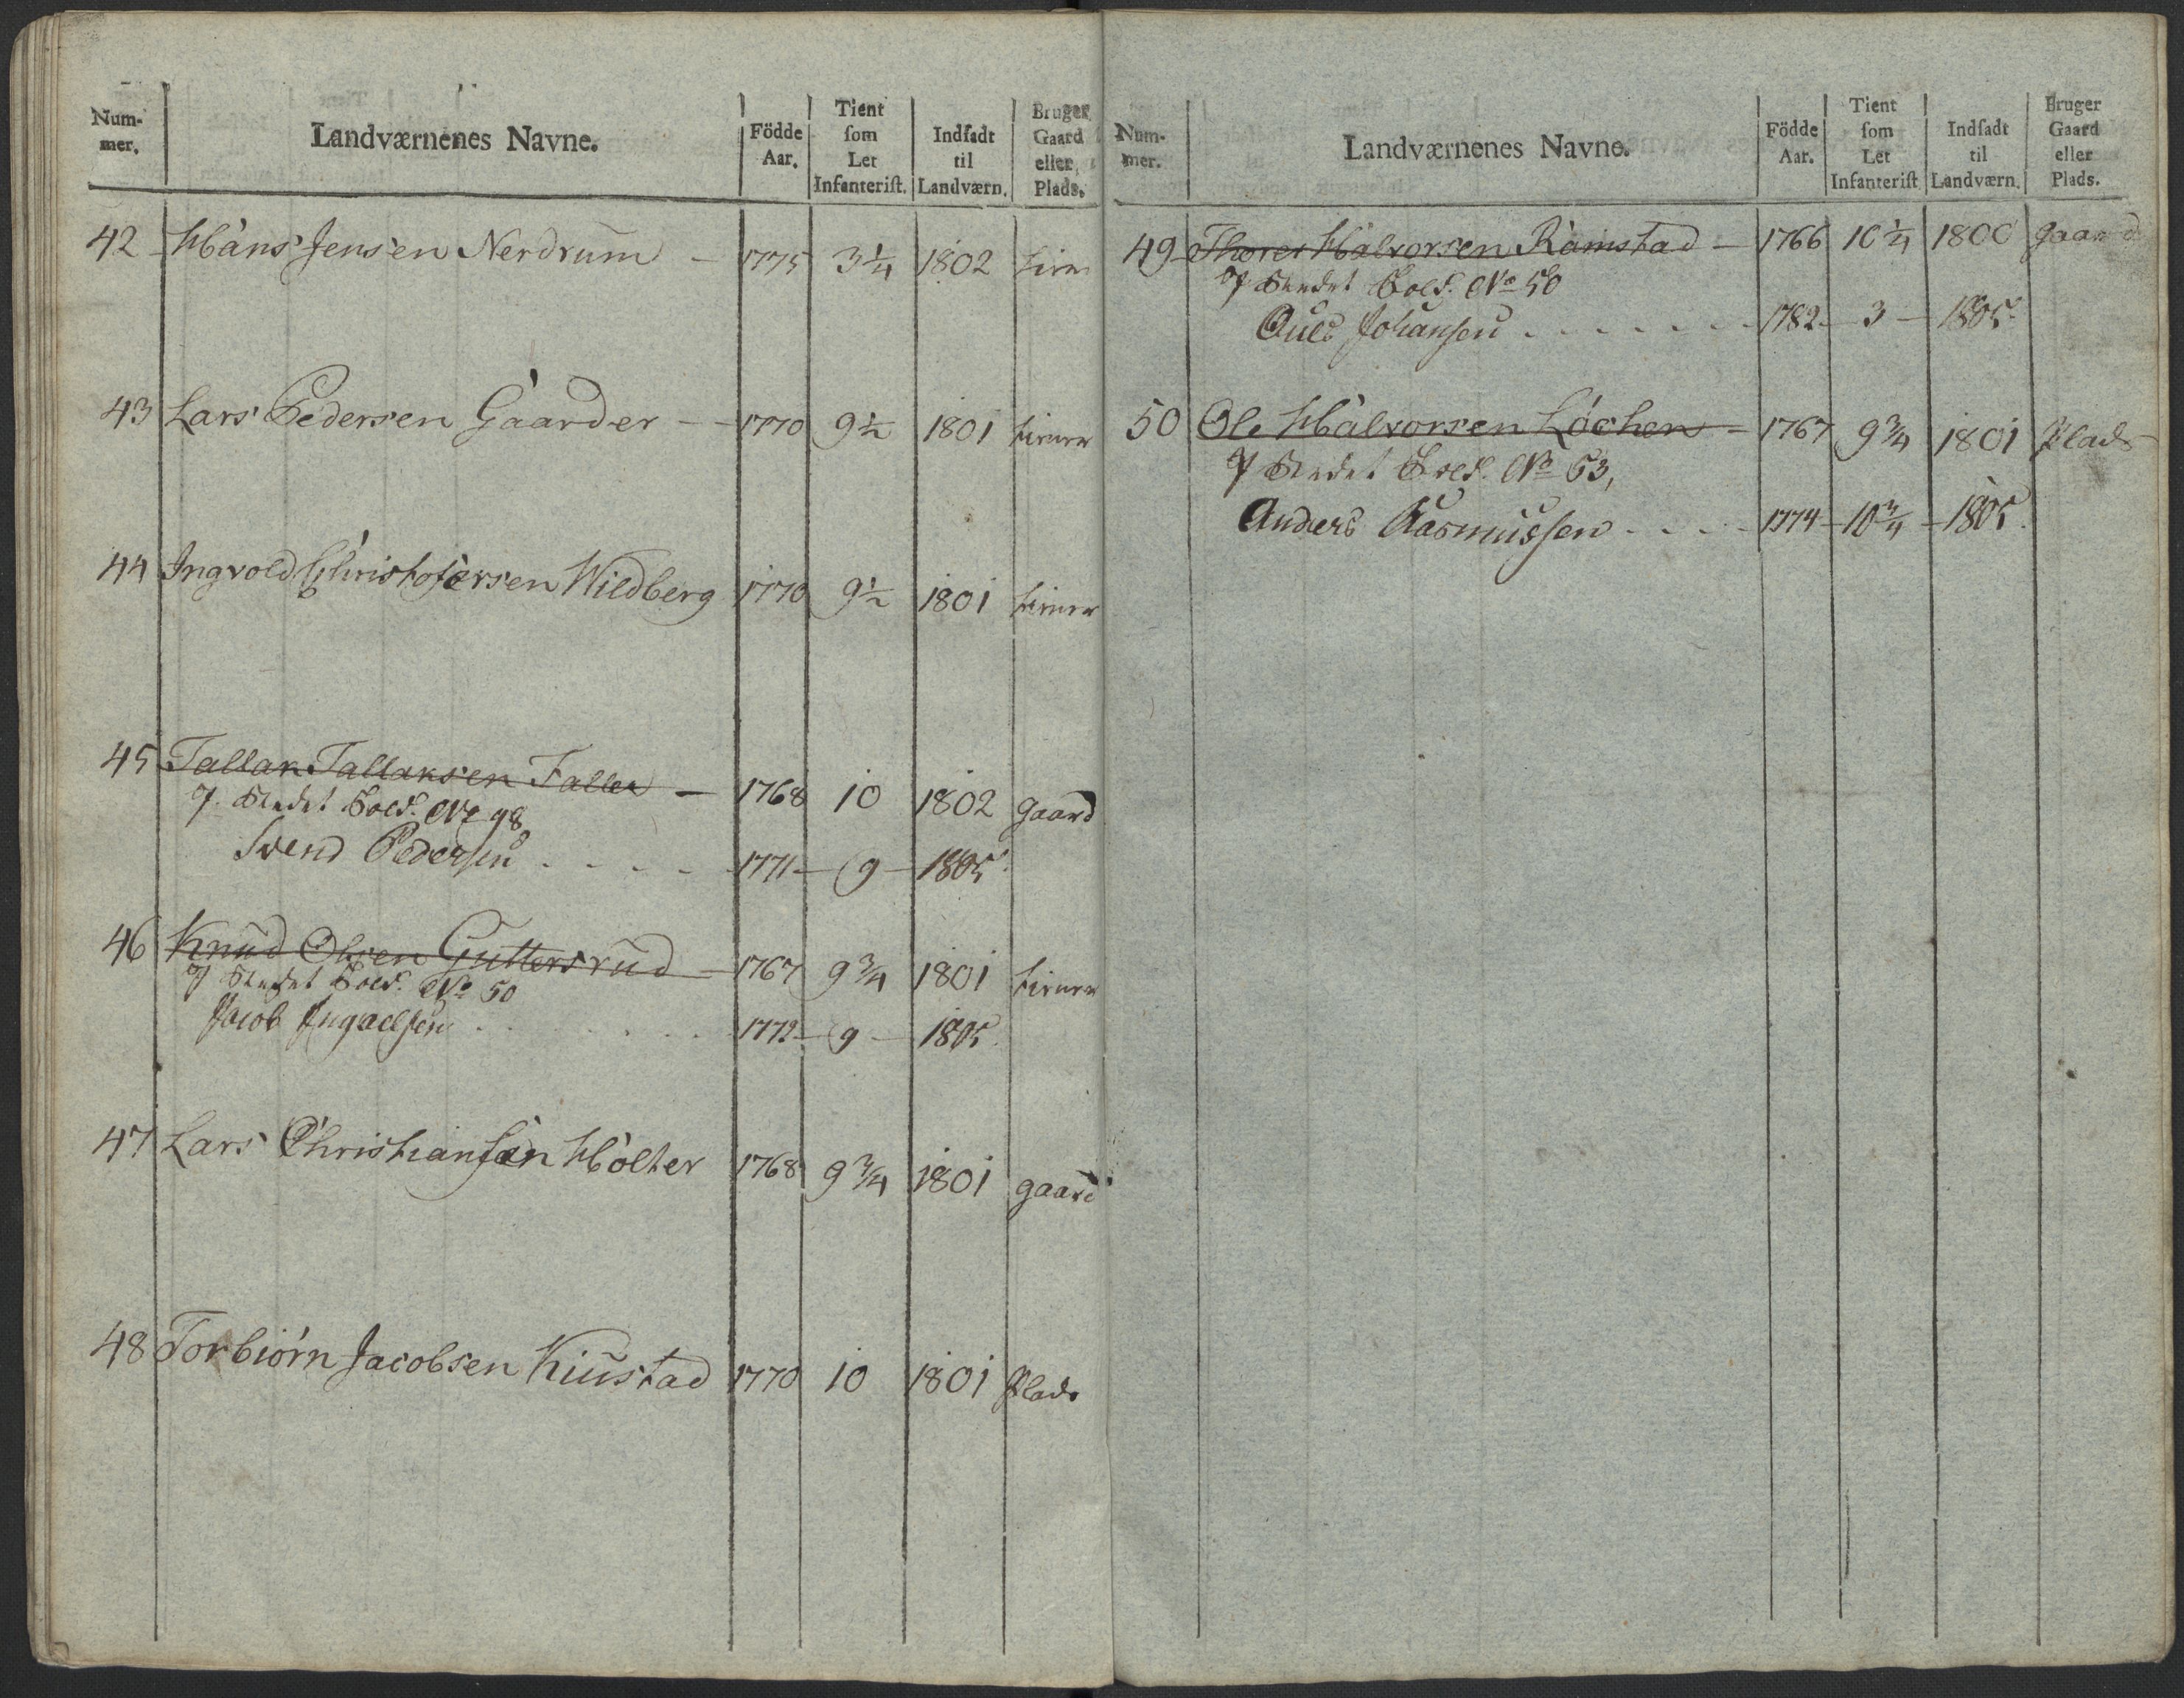 Num-mer. | Landværnenes Navne. | Födde Aar. | Tient som Let Infanterist. | Indsadt til Landværn. | Bruger Gaard eller Plads.
42 Hans Jensen Nerdrum – 1775 3¼ 1802
43 Lars Pedersen Gaarder – 1770 9½ 1801
44 Ingvold Christofersen Wildberg 1770 9½ 1801
45 Tallak Tallaksen Faller – 1768 10 1802 gaard
Sold. No 98
Svend Pedersen . . . . 1771 – 9 – 1805.
46 Knud Olsen Guttersrud – 1767 9¾ 1801
Sold. No 50
Jacob Ingaelsen . . . . 1772 – 9 – 1805.
47 Lars Christiansen Holter 1768 9¾ 1801 gaard
48 Torbiörn Jacobsen Kiustad 1770 10 1801 Plads
Num-mer. | Landværnenes Navne. | Födde Aar. | Tient som Let Infanterist | Indsadt til Landværn. | Bruger Gaard eller Plads.
49 Thorer Halvorsen Ramstad – 1766 10¼ 1800 gaard
Sold. No 50
Johansen . . . . 1782 – 3 – 1805.
50 Ole Halvorsen Löchen – 1767 9¾ 1801 Plads
Sold. No 53,
Anders Rasmussen . . . . 1774 – 10¾ – 1805.